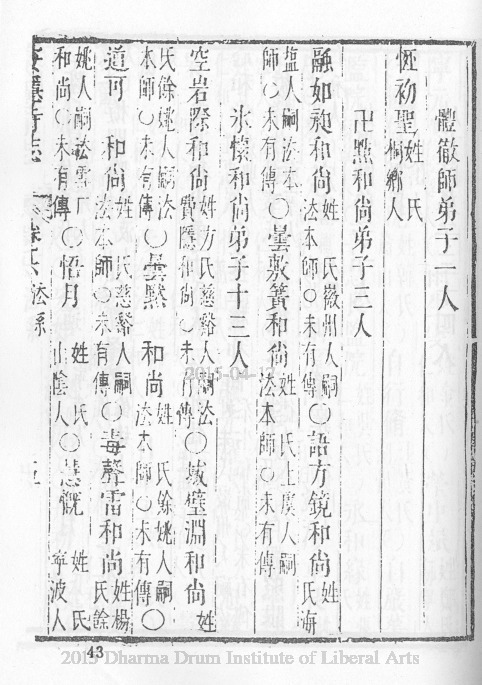 體徹師弟子一人
恆初聖姓 氏桐鄉人
卍㸃和尚弟子三人
融如㲀和尚姓 氏徽州人嗣法本師○未有傳○曇敷簧和尚姓 氏上虞人嗣法本師○未有傳○語方鏡和尚姓 氏海
鹽人嗣法本師○未有傳
氷懷和尚弟子十三人
空岩際和尚姓方氏慈谿人嗣法費隱和尚○未有傳○峸璧淵和尚姓
氏餘姚人嗣法本師○未有傳○曇黙 和尚姓 氏餘姚人嗣法本師○未有傳○
道可 和尚姓 氏慈谿人嗣法本師○未有傳○毒聲雷和尚姓楊氏餘
姚人嗣法雪 和尚○未有傳○悟月姓 氏山陰人○慧慨姓 氏寧波人
法系
43
2015-04-
2015 Dharma Drum Institute of Liberal Arts